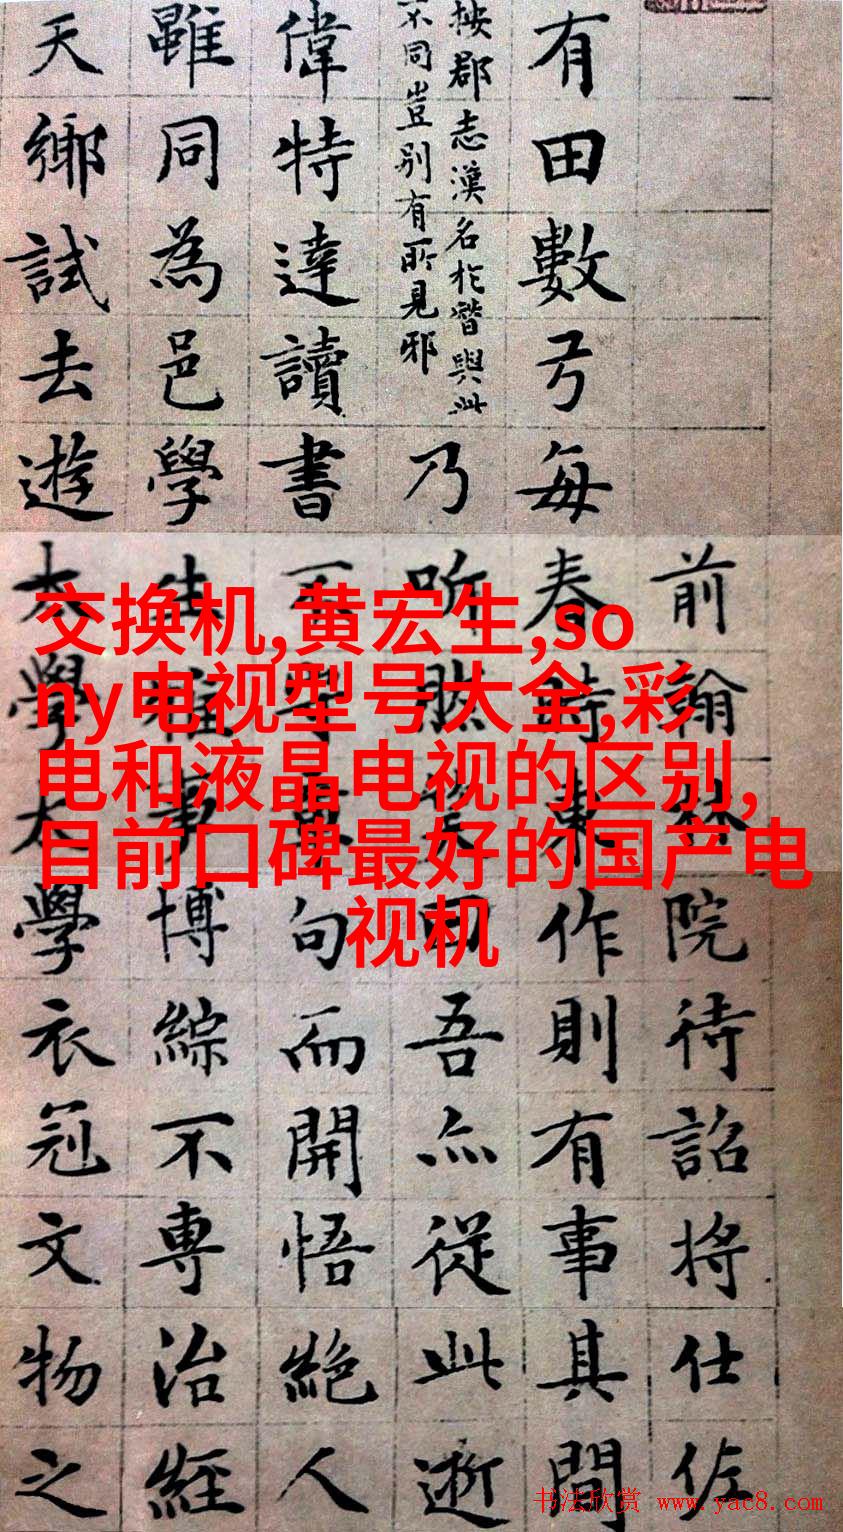 交换机,黄宏生,so
ny电视型号大全,彩
电和液晶电视的区别,
目前口碑最好的国产电
视机
前翰林院待詔將仕佐
有田數弓每春時東作則有事其間
按郡志漢名扵潛與此
不同豈別有所見邪
乃听然笑曰吾亦從此逝
偉特達讀書不尋章句而開悟絕人
雖同為邑學生雅事博綜不專治經
天鄉試去遊太學太學衣冠文物之
书法欣赏 www.yac8.com